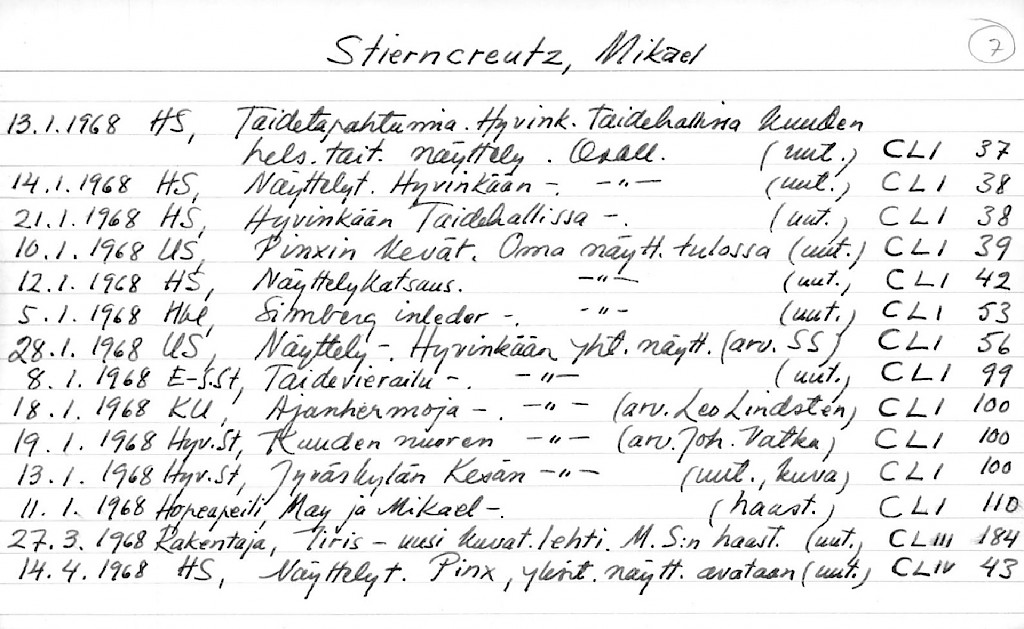 Stierncreutz, Mikael 7
13.1.1968 HS, Taidetapahtumia. Hyvink. Taidehallissa kuuden
hels. tait. näyttely. Osall. (uut.) CLI 37
14.1.1968 HS, Näyttelyt. Hyvinkään -. -"- (uut.) CLI 38
21.1.1968 HS, Hyvinkään Taidehallissa -. (uut.) CLI 38
10.1.1968 US, Pinxin kevät. Oma näytt. tulossa (uut.) CLI 39
12.1.1968 HS, Näyttelykatsaus. -"- (uut.) CLI 42
5.1.1968 Hbl, Simberg inleder -. -"- (uut.) CLI 53
28.1.1968 US, Näyttely -. Hyvinkään yht. näytt. (arv. SS) CLI 56
8.1.1968 E-S.St, Taidevierailu -. -"- (uut.) CLI 99
18.1.1968 KU, Ajanhermoja -. -"- (arv. Leo Lindsten) CLI 100
19.1.1968 Hyv.St, Kuuden nuoren -"- (arv. Joh. Vatka) CLI 100
13.1.1968 Hyv.St, Jyväskylän Kesän -"- (uut., kuva) CLI 100
11.1.1968 Hopeapeili, May ja Mikael -. (haast.) CLI 110
27.3.1968 Rakentaja, Iiris - uusi kuvat. lehti. M.S:n haast. (uut.) CLIII 184
14.4.1968 HS, Näyttelyt. Pinx, yksit. näytt. avataan (uut.) CLIV 43